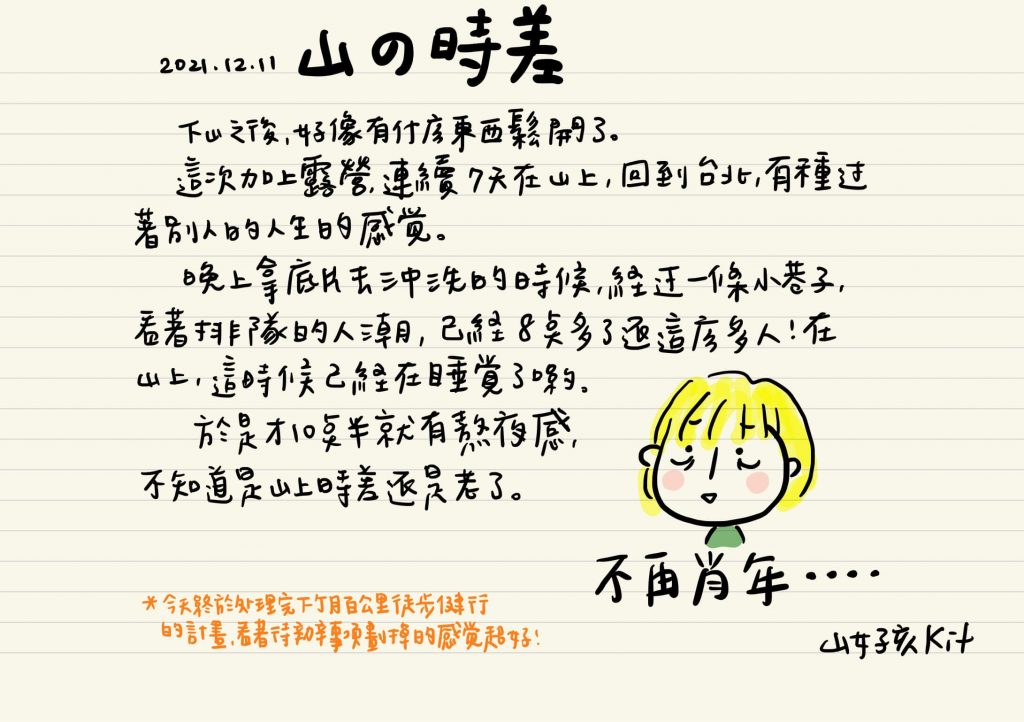 2021.12.11 山の時差
下山之後,好像有什庅東西鬆開了。
這次加上露營,連續7天在山上,回到台北,有種过
著別人的人生的感觉。
晚上拿底片去沖洗的時候,経过一條小巷子,
看著排隊的人潮,已経8点多了还這庅多人!在
山上,這時候已経在睡覚了喲。
於是才10点半就有熬夜感,
不知道是山上時差还是老了。
不再肖年····
*今天終於处理完下个月百公里徒步健行
的計畫,看著待辦事項劃掉的感觉超好!
山女孩Kit